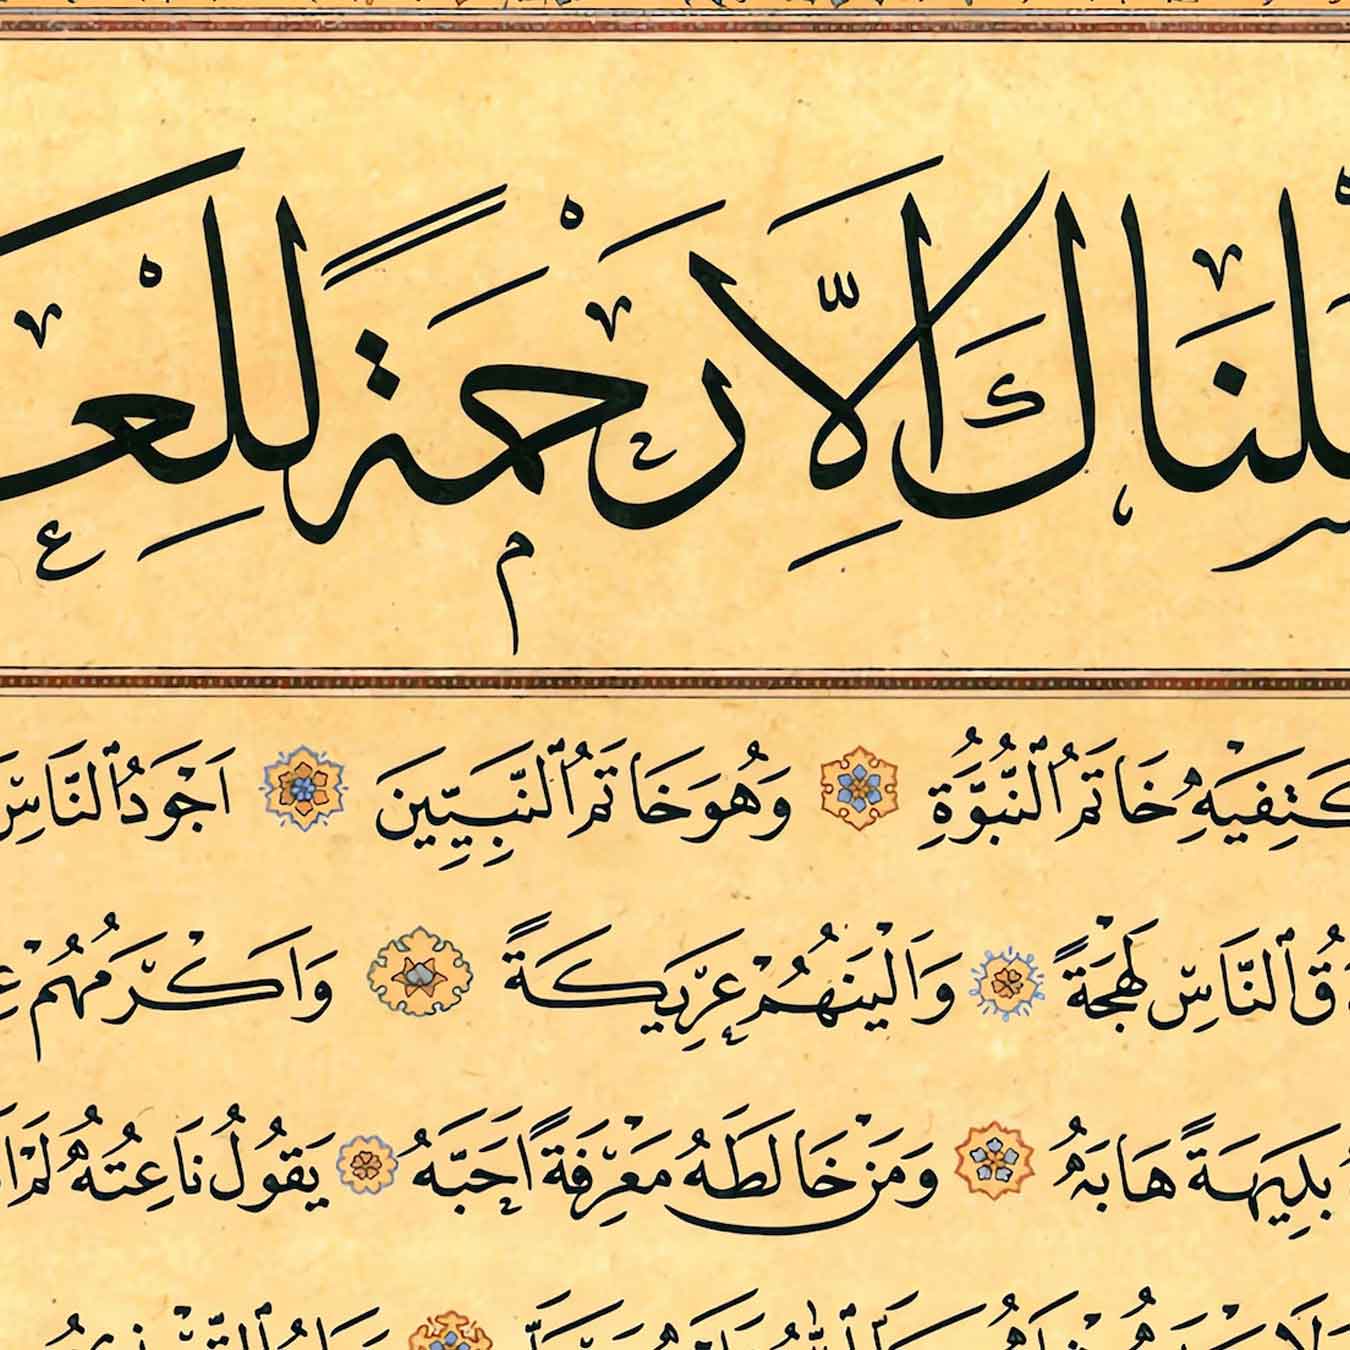 لْنَاكَ اِلَّا رَحْمَةً لِلْعَـ
كَتِفَيْهِ خَاتَمُ ٱلنُّبُوَّةِ وَهُوَ خَاتَمُ ٱلنَّبِيِّينَ اَجْوَدُ ٱلنَّاسِ
ٱلنَّاسِ لَهْجَةً وَاَلْيَنَهُمْ عَرِيكَةً وَاَكْرَمُهُمْ
هَابَهُ وَمَنْ خَالَطَهُ مَعْرِفَةً اَحَبَّهُ يَقُولُ نَاعِتُهُ لَمْ